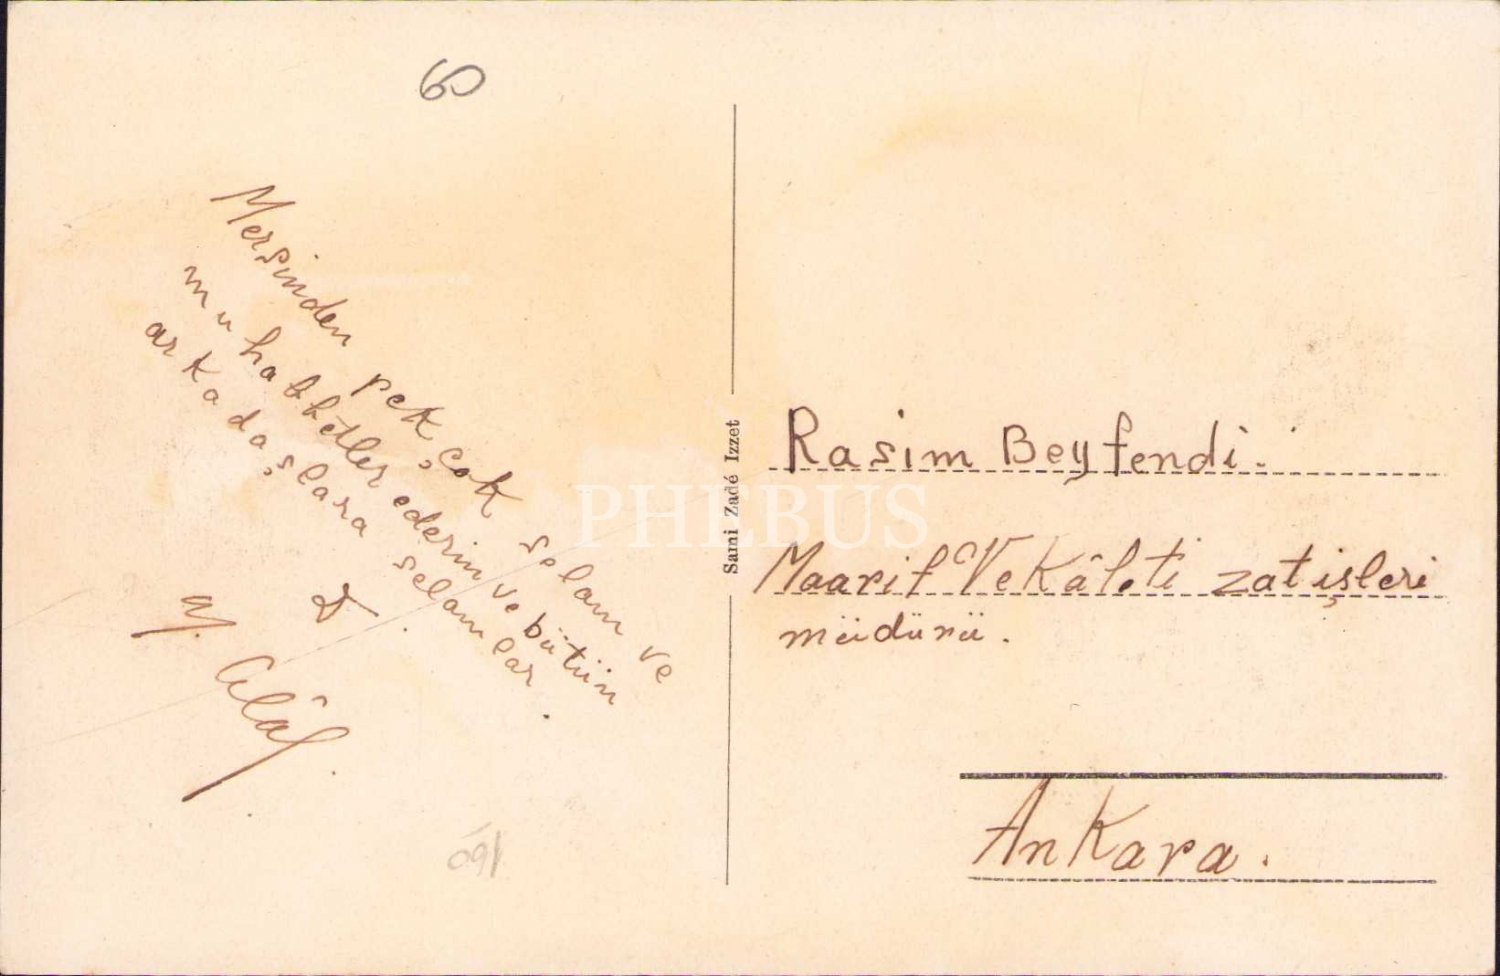 60
Mersinden pek çok selam ve
muhabbetler ederim ve bütün
arkadaşlara selamlar.
160
Sami Zadé Izzet
PHEBUS
Rasim Beyfendi.
Maarif Vekâleti zat işleri
müdürü.
Ankara.